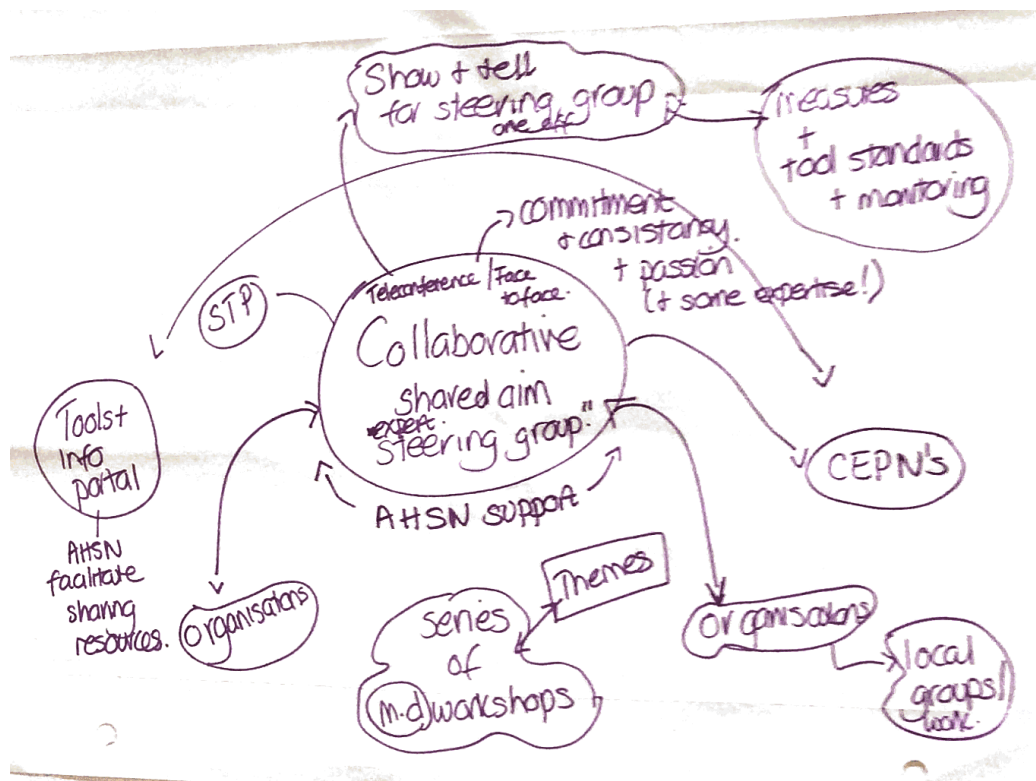 Show + tell
for steering group
one off
Measures
+
tool standards
+ monitoring
commitment
+ consistancy.
+ passion
(+ some expertise!)
Teleconference / Face
to face.
STP
Collaborative
shared aim
"expert
steering group."
Tools +
info
portal
CEPN's
AHSN support
AHSN
facilitate
sharing
resources.
organisations
Themes
series
of
m.d workshops
organisations
local
groups /
work.